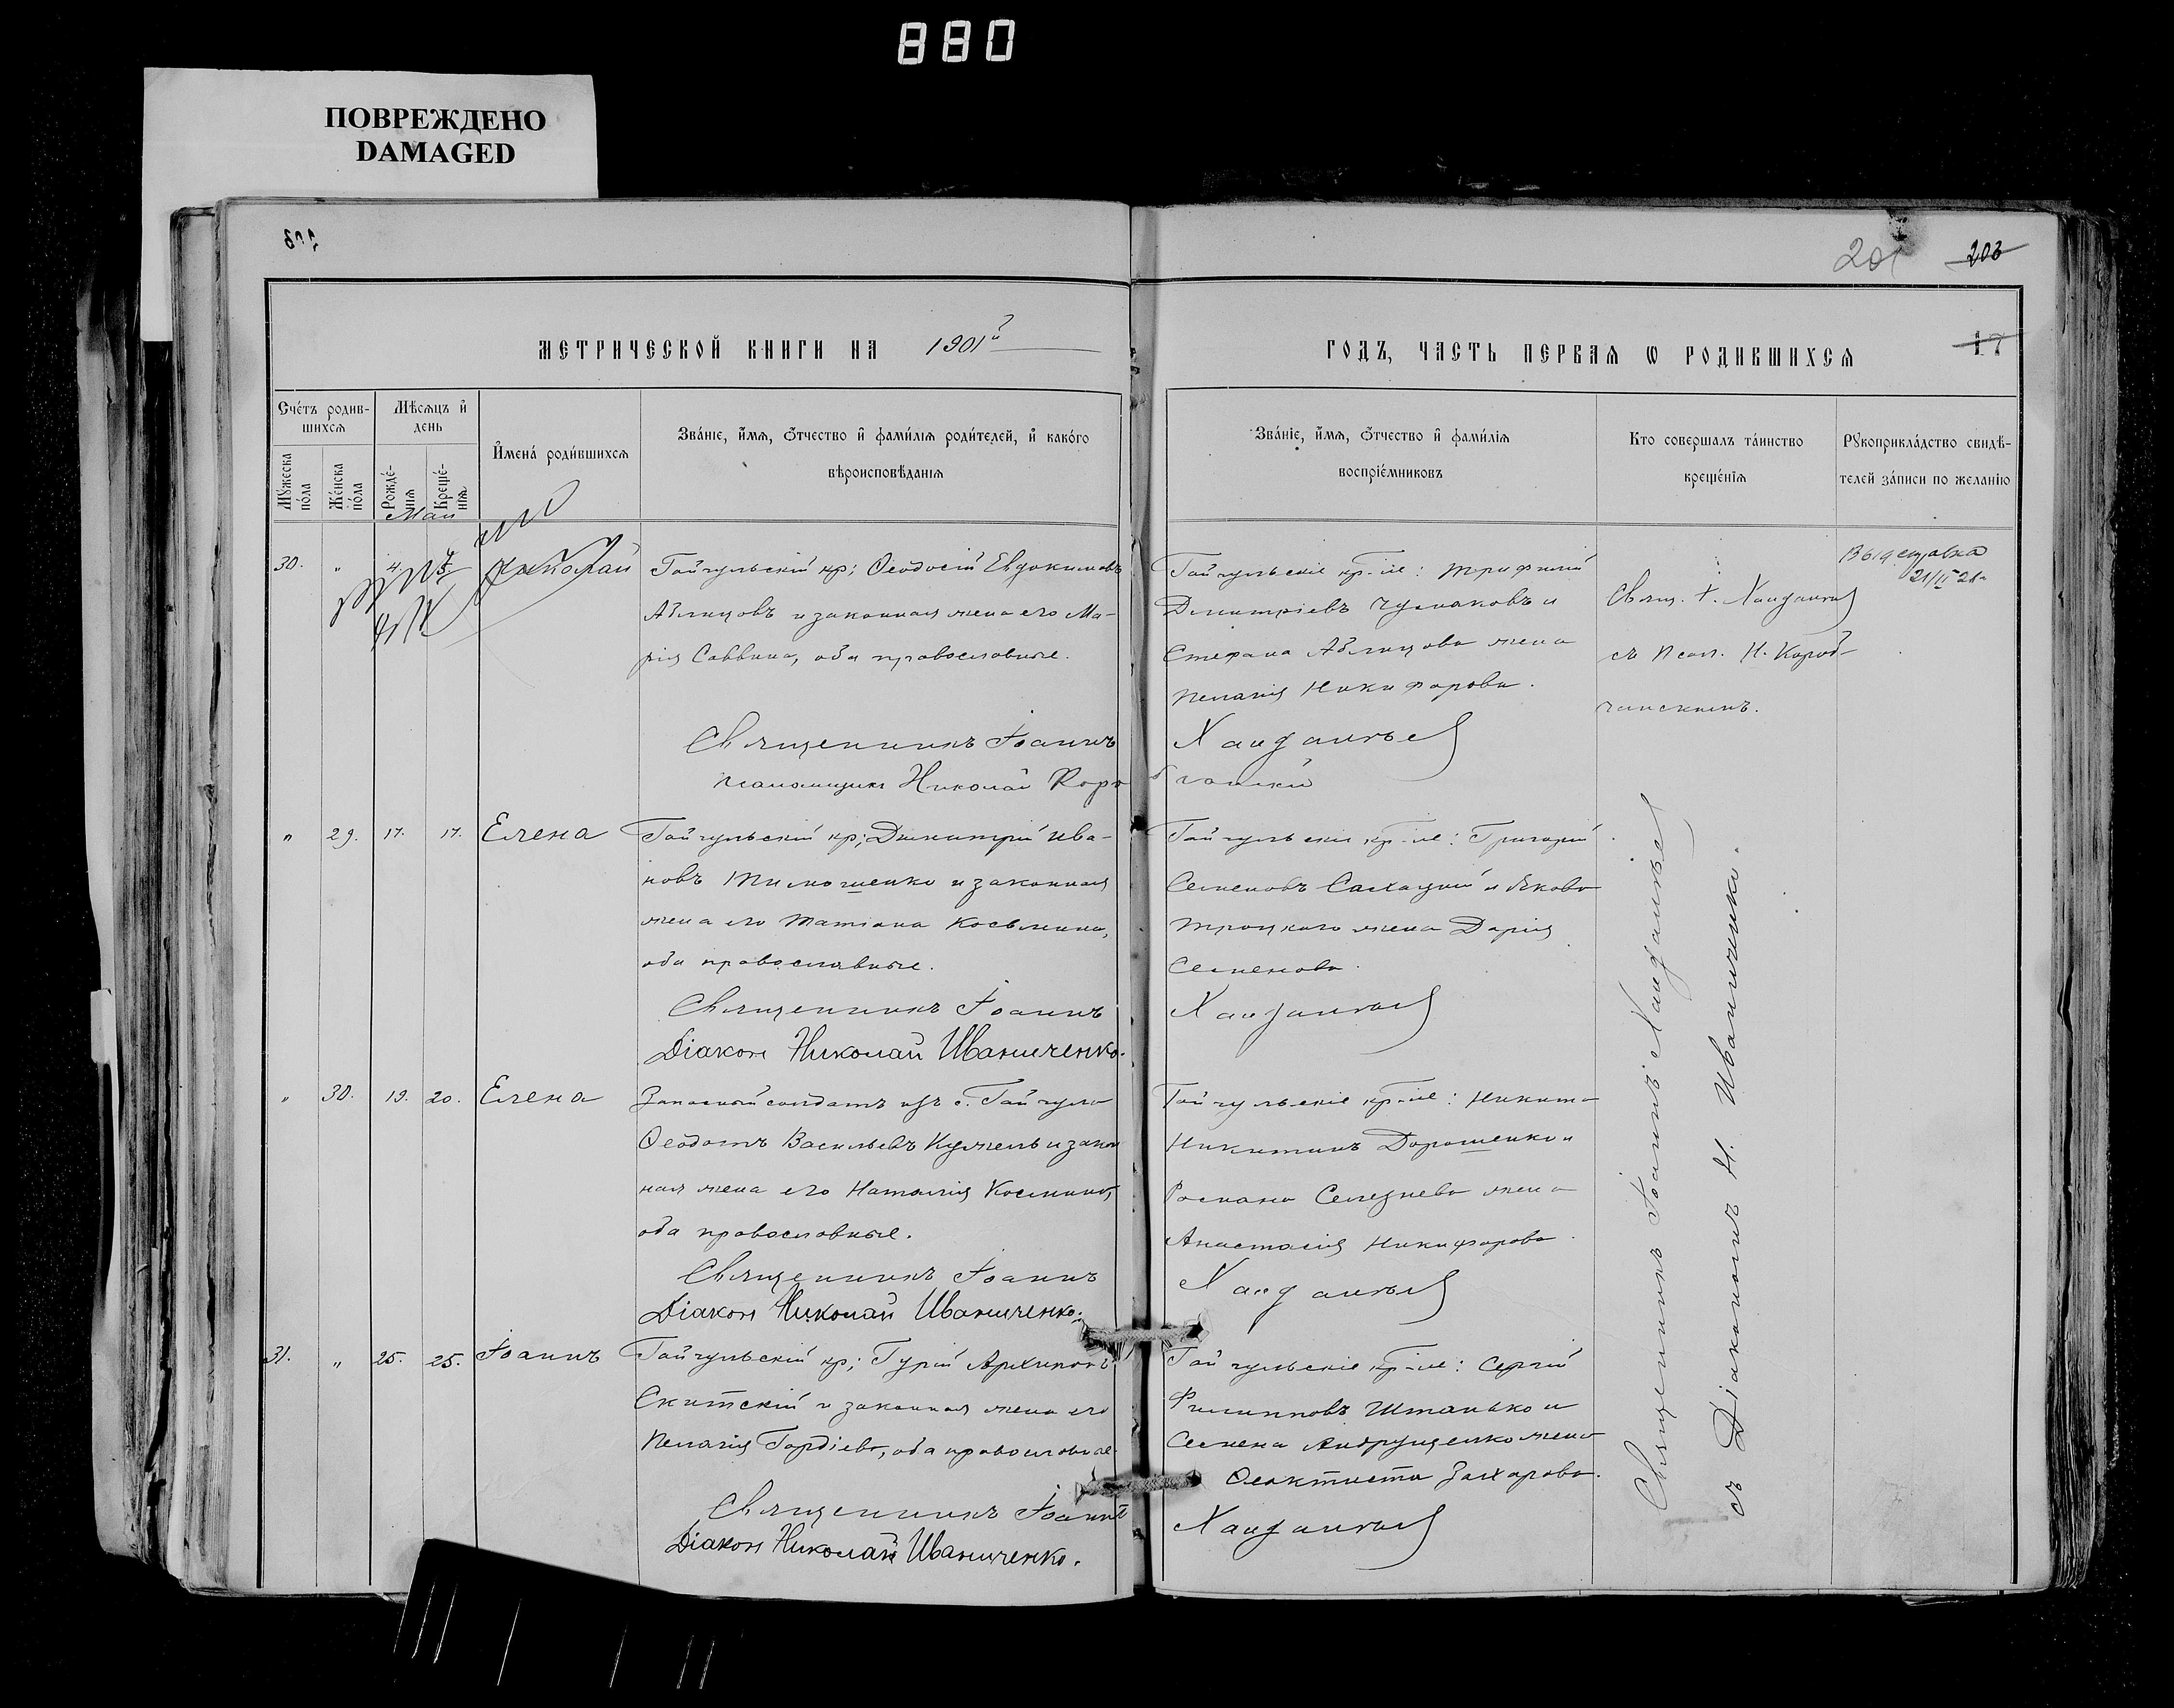 880
ПОВРЕЖДЕНО
DAMAGED
203
201
203
МЕТРИЧЕСКОЙ КНИГИ НА 1901й
ГОДЪ, ЧАСТЬ ПЕРВАЯ Ѡ РОДИВШИХСЯ
17
Счётъ родив-
шихся
Мѣсяцъ и
день
Мужеска пола
Женска пола
Рожде-
нія
Креще-
нія
Имена родившихся
Званіе, имя, отчество и фамилія родителей, и какого
вѣроисповѣданія
Званіе, имя, отчество и фамилія
воспріемниковъ
Кто совершалъ таинство
крещенія
Рукоприкладство свидѣ-
телей записи по желанію
Май
30. " 4. 5 Николай
Гайчульскій кр; Ѳеодосій Евдокимовъ
и законная жена его Ма-
рія Саввина, оба православные.
Гайчульскіе кр-не: Трифилій
Димитріевъ Чумаковъ и
Стефана жена
Пелагія Никифорова.
Свящ. І.
съ псал. Н. Короб-
чанскимъ.
21/II 21
Священникъ Іоаннъ
псаломщикъ Николай Коробчанскій
" 29. 17. 17. Елена
Гайчульскій кр; Димитрій Ива-
новъ Тимошенко и законная
жена его Татіана Косьмина,
оба православные.
Гайчульскіе кр-не: Григорій
Семеновъ и Якова
Троцкаго жена Дарія
Семенова.
Священникъ Іоаннъ
Діаконъ Николай Иваниченко.
" 30. 19. 20. Елена
Запасный солдатъ изъ с. Гайчула
Ѳеодотъ Васильевъ и закон
ная жена его Наталія Косьмина,
оба православные.
Гайчульскіе кр-не: Никита
Никитинъ Дорошенко и
Романа Селезнева жена
Анастасія Никифорова.
Священникъ Іоаннъ
Діаконъ Николай Иваниченко.
31. " 25. 25. Іоаннъ
Гайчульскій кр; Гурій Архиповъ
Скитскій и законная жена его
Пелагія Гордіева, оба православные
Гайчульскіе кр-не: Сергій
Филипповъ Штанько и
Семена Андрущенко жена
Ѳеоктиста Захарова.
Священникъ Іоаннъ
Діаконъ Николай Иваниченко.
Священникъ Іоаннъ
съ Діакономъ Н. Иваниченко.